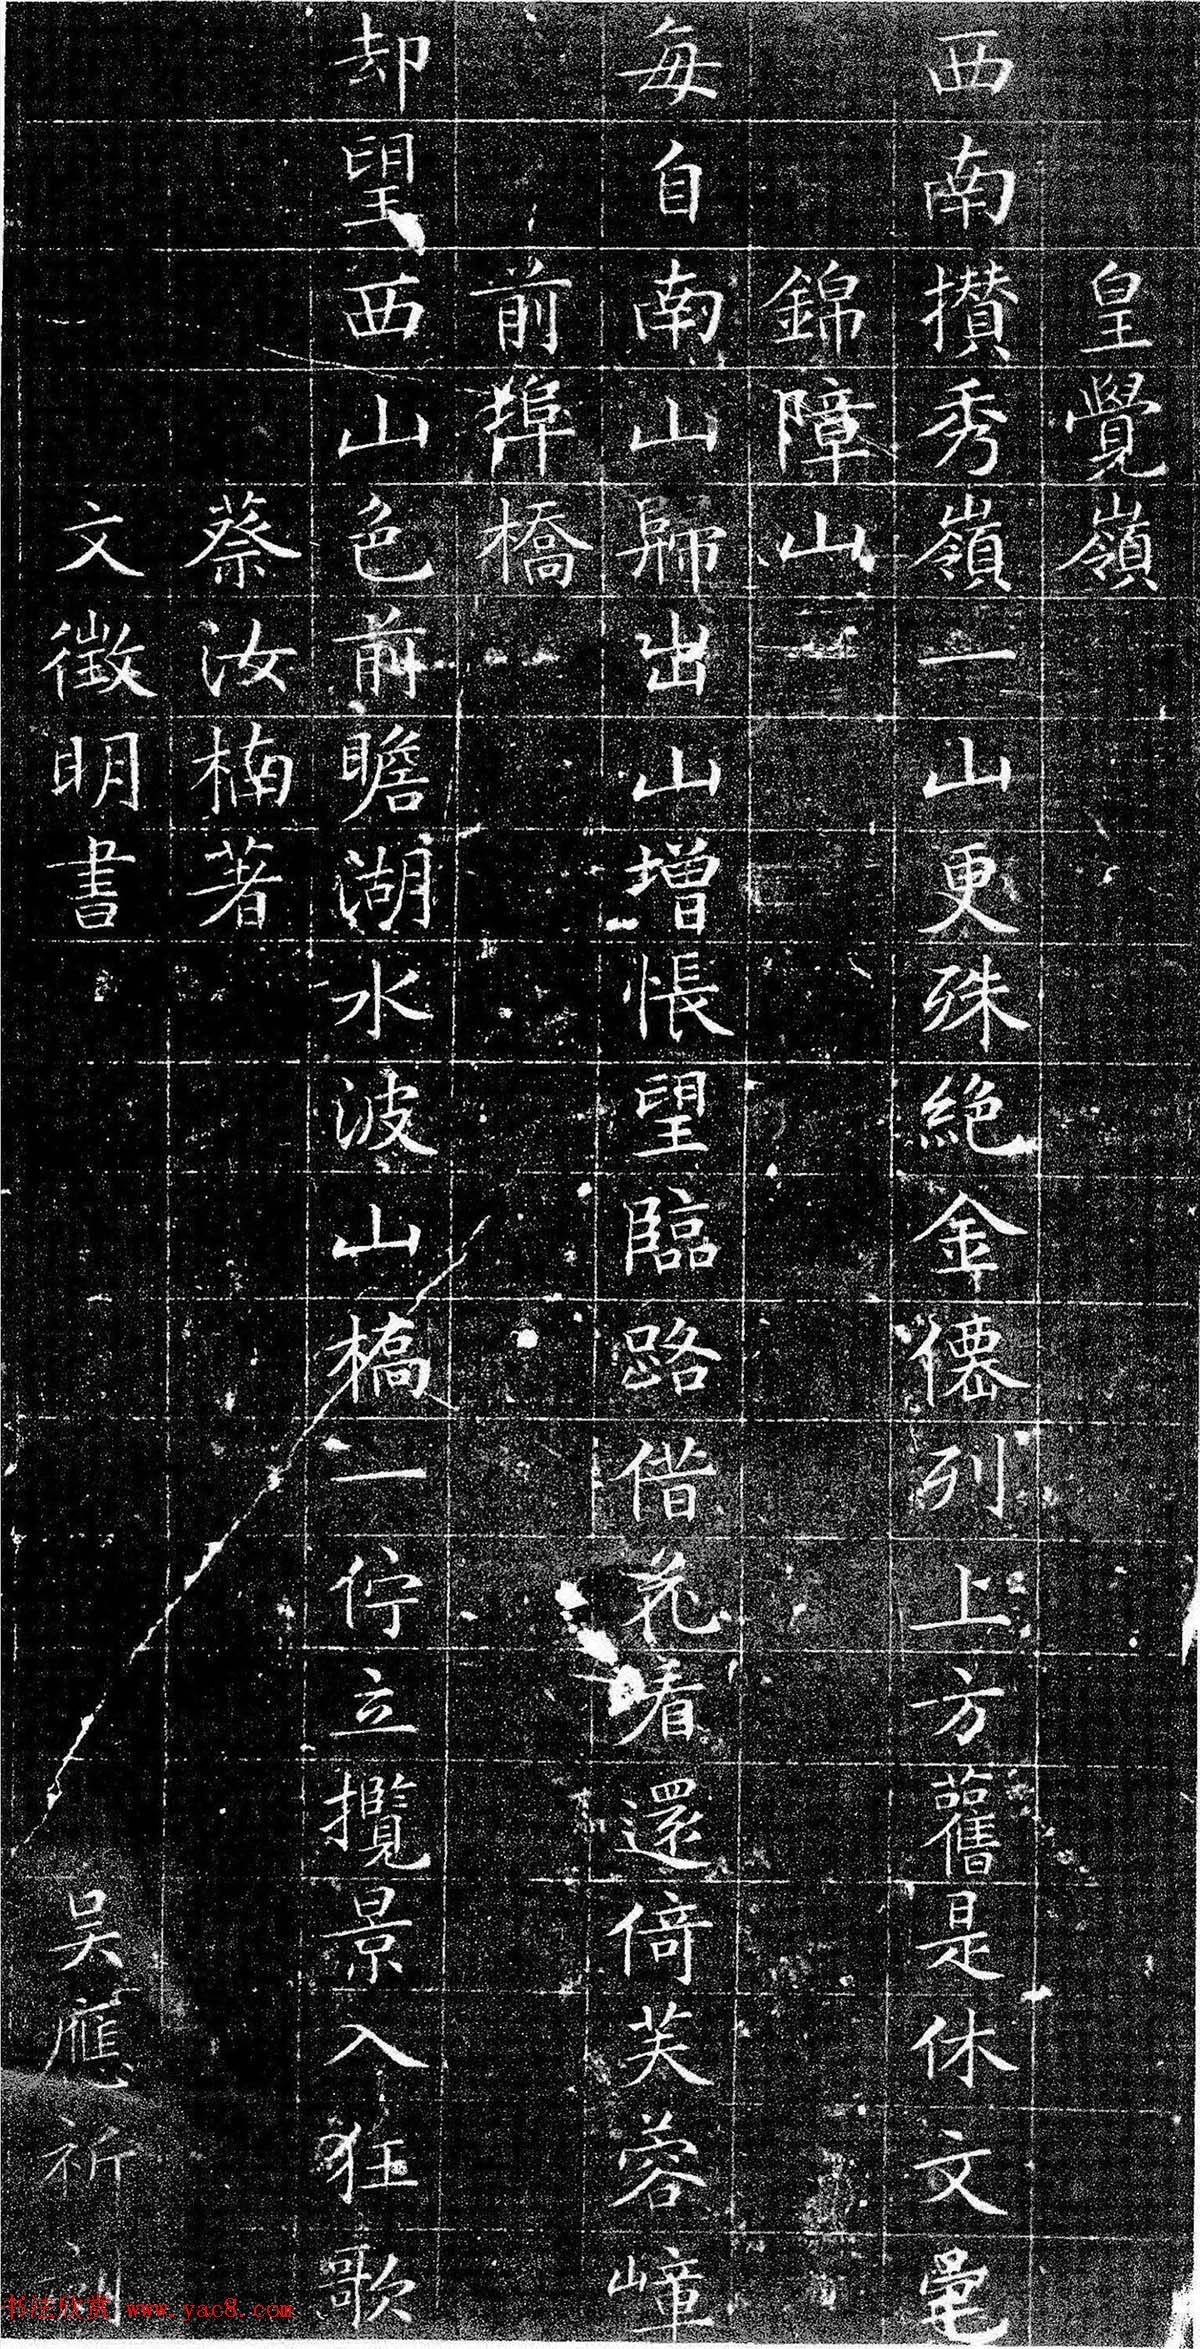 皇覺嶺
西南攅秀嶺一山更殊絶金僊列上方舊是休文宅
錦障山
每自南山歸出山增悵望臨路借花看還倚芙蓉嶂
前埠橋
却望西山色前瞻湖水波山橋一佇立攬景入狂歌
蔡汝楠著
文徵明書
吴應祈刻
书法欣赏 www.yac8.com